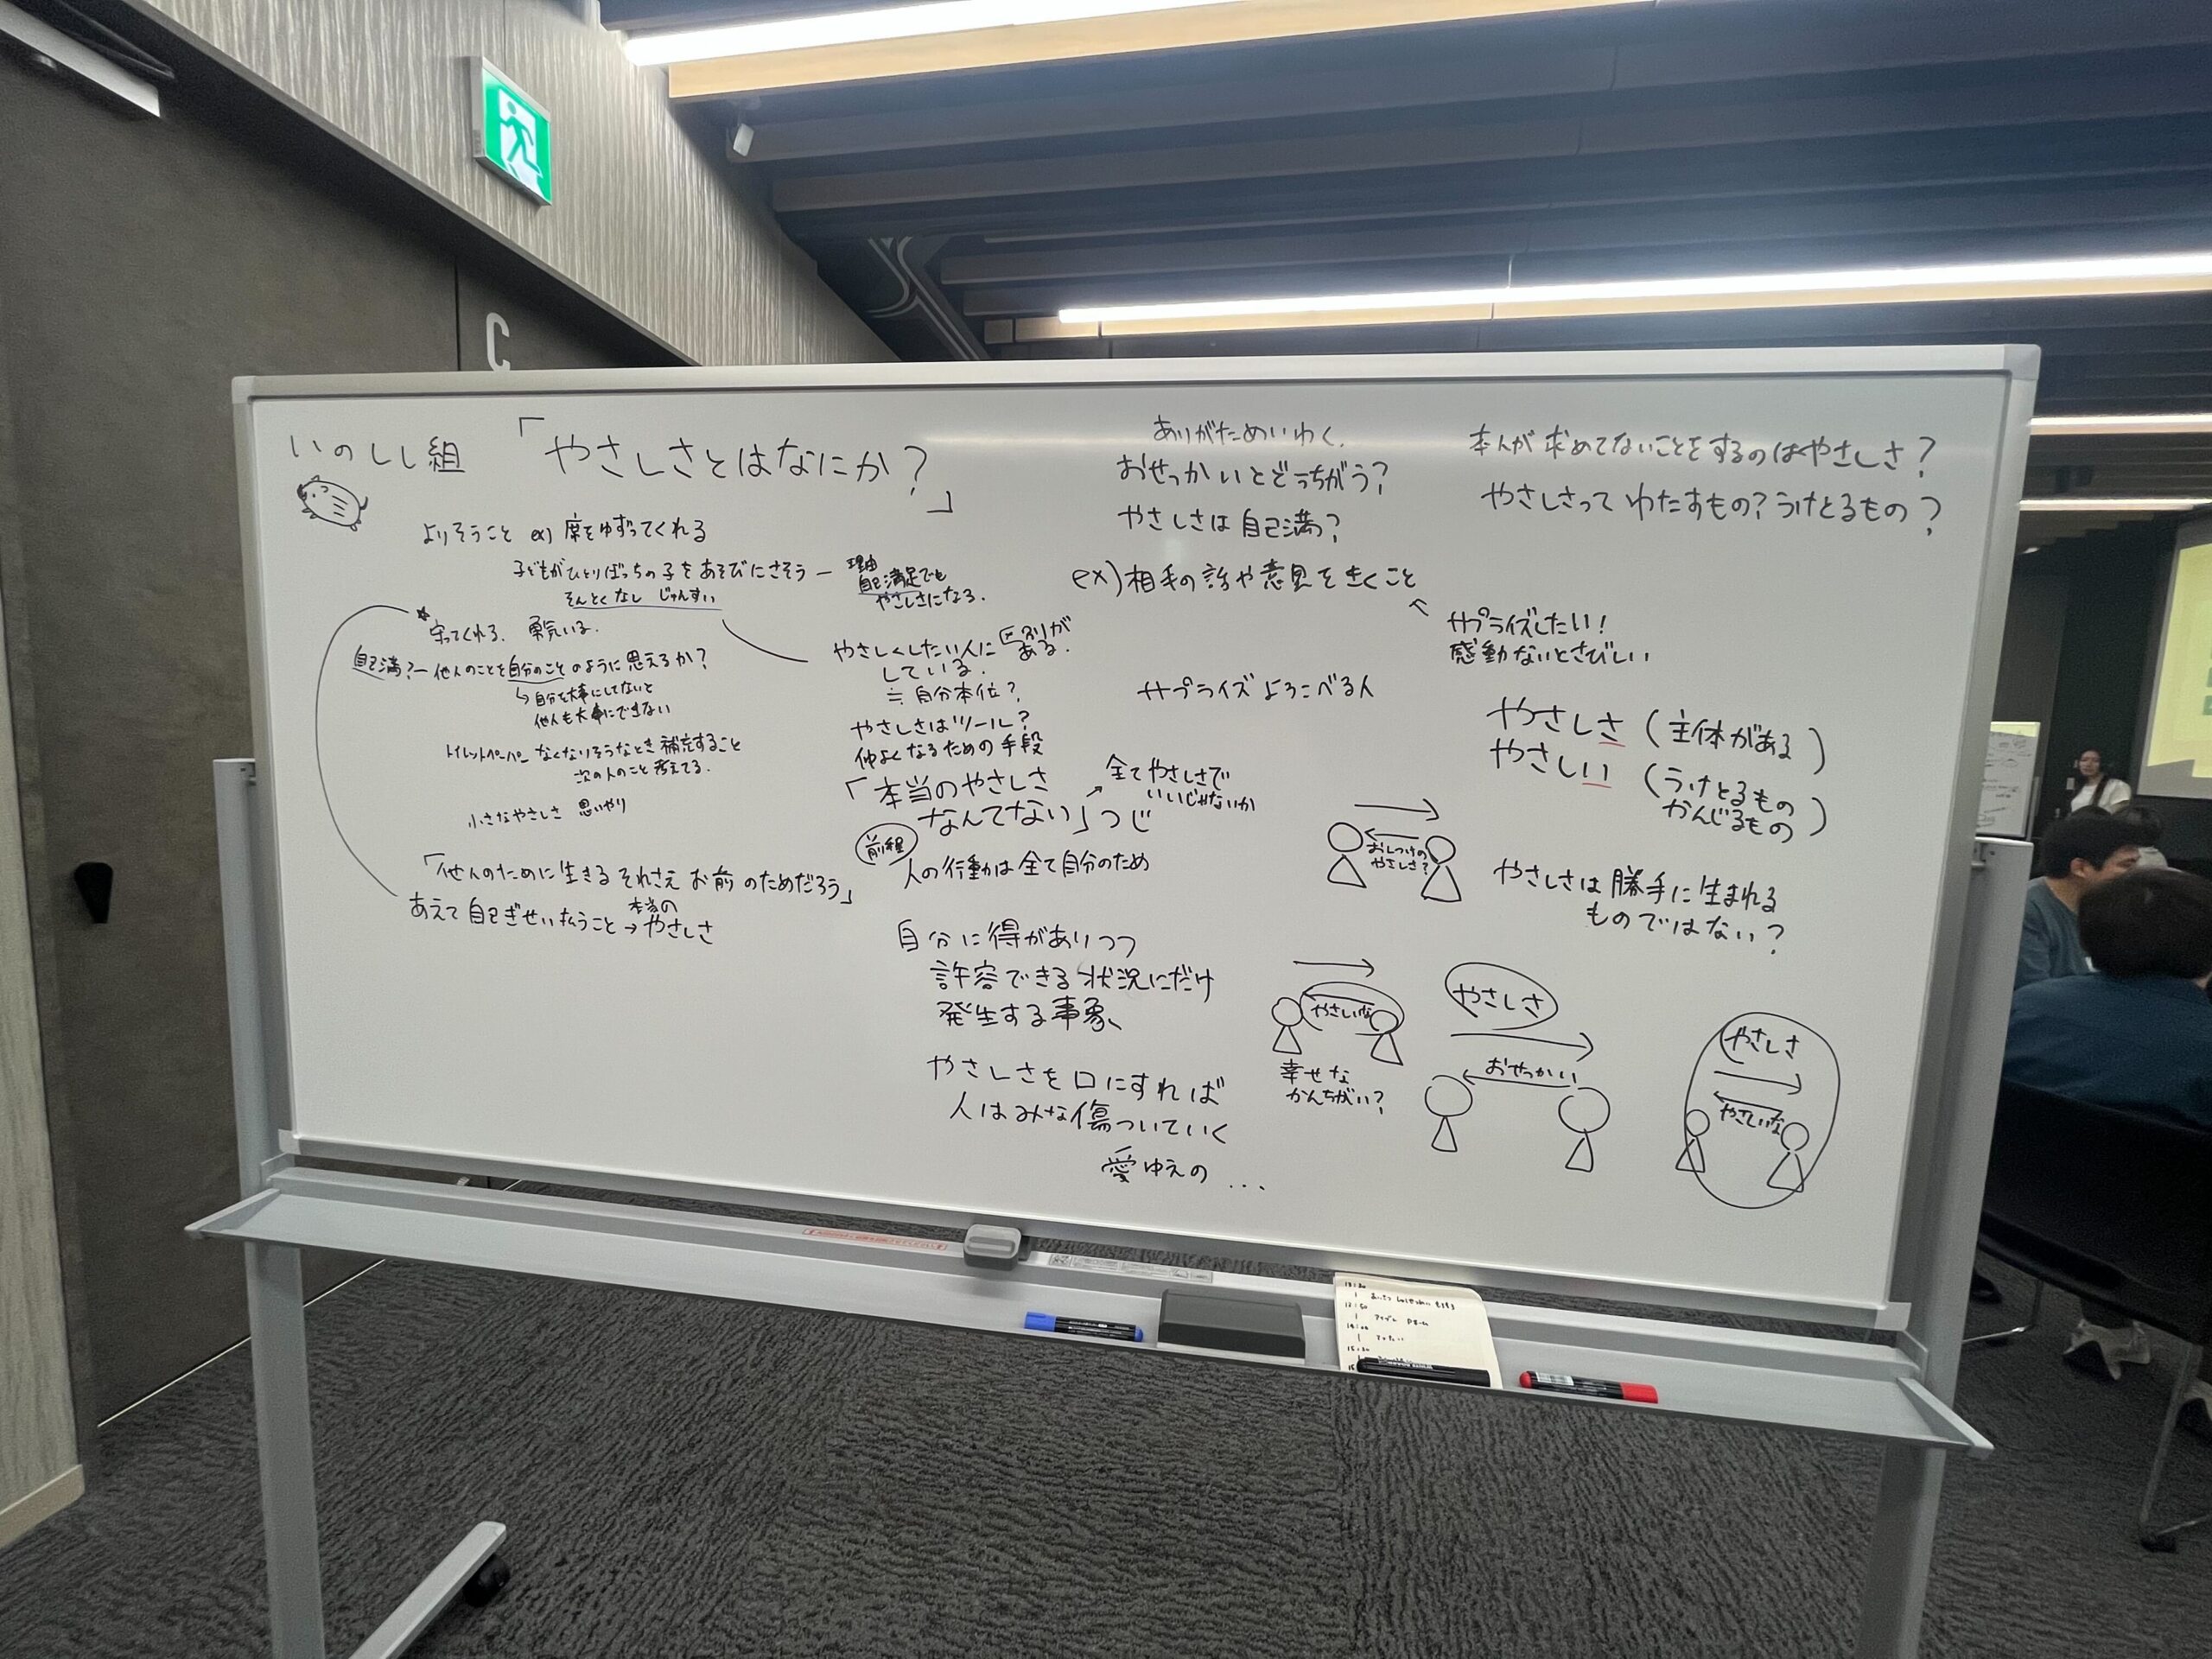 C
いのしし組
「やさしさとはなにか?」
よりそうこと ex) 席をゆずってくれる
子どもがひとりぼっちの子をあそびにさそう ー
そんとくなし じゅんすい
理由
自己満足でも
やさしさになる.
守ってくれる. 勇気いる.
自己満?ー他人のことを自分のことのように思えるか?
↳自分を大事にしてないと
他人も大事にできない
トイレットペーパー なくなりそうなとき補充すること
次の人のこと考えてる.
小さなやさしさ 思いやり
「他人のために生きる それさえ お前のためだろう」
あえて自己ぎせい払うこと→本当のやさしさ
やさしくしたい人に
している.
区別が
ある.
≒ 自分本位?
やさしさはツール?
仲よくなるための手段
「本当のやさしさ
なんてない」つじ
全てやさしさで
いいじゃないか
前程
人の行動は全て自分のため
自分に得がありつつ
許容できる状況にだけ
発生する事象、
やさしさを口にすれば
人はみな傷ついていく
愛ゆえの...
ありがためいわく.
おせっかいとどっちがう?
やさしさは自己満?
ex)相手の話や意見をきくこと
サプライズしたい!
感動ないとさびしい
サプライズよろこべる人
本人が求めてないことをするのはやさしさ?
やさしさって わたすもの?うけとるもの?
やさしさ (主体がある)
やさしい (うけとるもの
かんじるもの)
おしつけの
やさしさ?
やさしさは勝手に生まれる
ものではない?
やさしいな
幸せな
かんちがい?
やさしさ
おせっかい
やさしさ
やさしいな